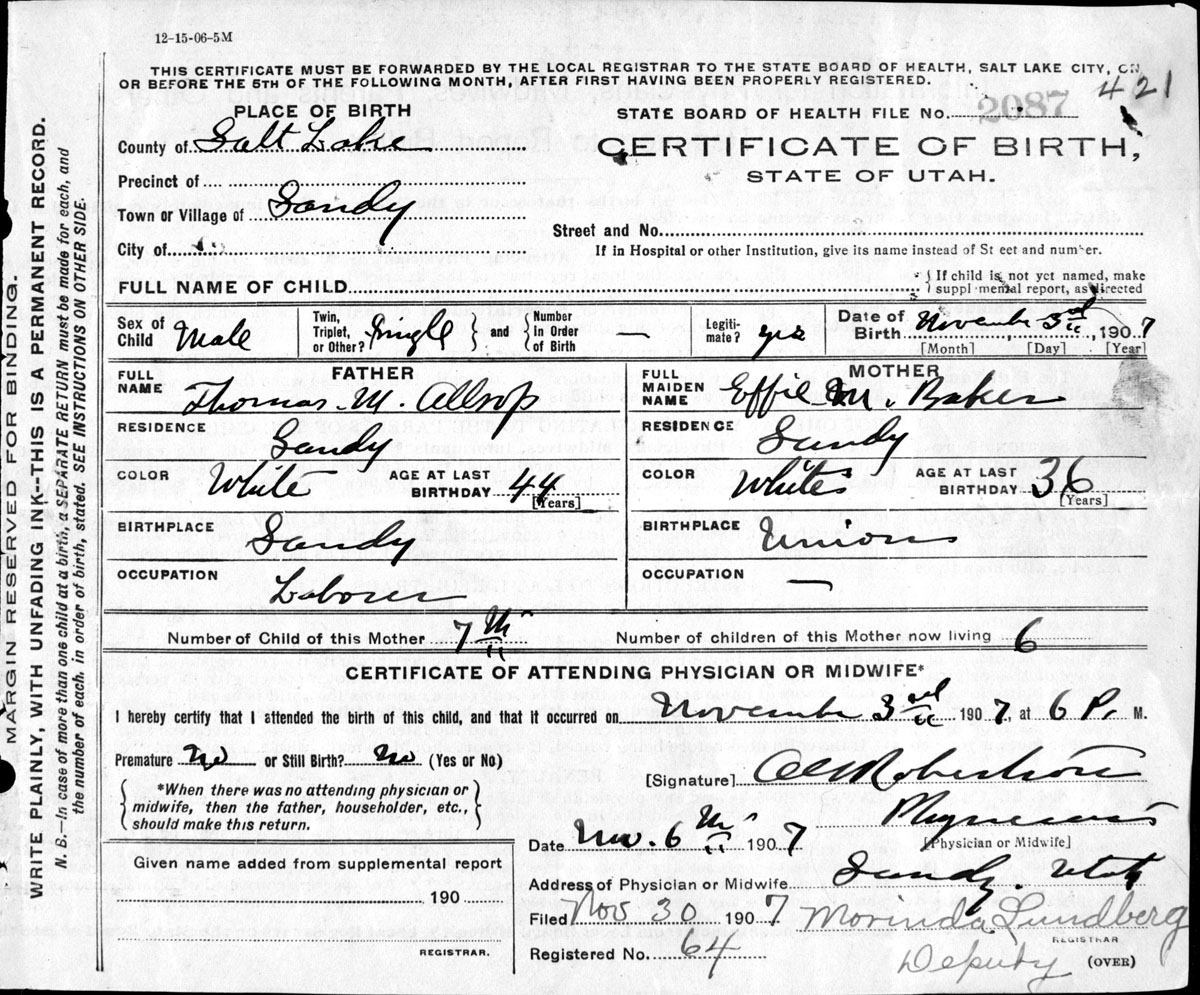 12-15-06-5M
THIS CERTIFICATE MUST BE FORWARDED BY THE LOCAL REGISTRAR TO THE STATE BOARD OF HEALTH, SALT LAKE CITY, ON
OR BEFORE THE 5TH OF THE FOLLOWING MONTH, AFTER FIRST HAVING BEEN PROPERLY REGISTERED.
421
PLACE OF BIRTH
STATE BOARD OF HEALTH FILE NO. 2087
County of Salt Lake
CERTIFICATE OF BIRTH,
STATE OF UTAH.
Precinct of
Town or Village of Sandy
Street and No.
City of
If in Hospital or other Institution, give its name instead of St eet and number.
FULL NAME OF CHILD
If child is not yet named, make
suppl mental report, as directed
Sex of Child Male
Twin, Triplet, or Other? Single and Number In Order of Birth
Legiti-mate? yes
Date of Birth November 3rd, 1907
[Month] [Day] [Year]
FATHER
FULL NAME Thomas M. Allsop
RESIDENCE Sandy
COLOR White AGE AT LAST BIRTHDAY 44 [Years]
BIRTHPLACE Sandy
OCCUPATION Laborer
MOTHER
FULL MAIDEN NAME Effie M. Baker
RESIDENCE Sandy
COLOR White AGE AT LAST BIRTHDAY 36 [Years]
BIRTHPLACE Union
OCCUPATION —
Number of Child of this Mother 7th
Number of children of this Mother now living 6
CERTIFICATE OF ATTENDING PHYSICIAN OR MIDWIFE*
I hereby certify that I attended the birth of this child, and that it occurred on November 3rd 1907, at 6 P. M.
Premature No or Still Birth? No (Yes or No)
[Signature] Robertson
*When there was no attending physician or
midwife, then the father, householder, etc.,
should make this return.
Physician
[Physician or Midwife]
Date Nov. 6th 1907
Given name added from supplemental report
190
REGISTRAR.
Address of Physician or Midwife Sandy. Utah
Filed Nov 30 1907 Morinda Lundberg
REGISTRAR
Registered No. 64
Deputy (OVER)
MARGIN RESERVED FOR BINDING.
WRITE PLAINLY, WITH UNFADING INK--THIS IS A PERMANENT RECORD.
N. B.—In case of more than one child at a birth, a SEPARATE RETURN must be made for each, and
the number of each, in order of birth, stated. SEE INSTRUCTIONS ON OTHER SIDE.